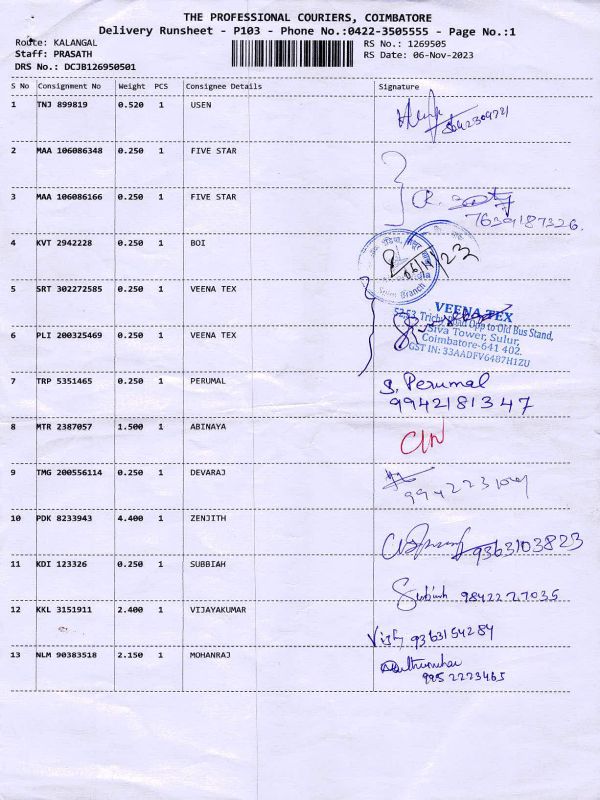 THE PROFESSIONAL COURIERS, COIMBATORE
Delivery Runsheet - P103 - Phone No.:0422-3505555 - Page No.:1
Route: KALANGAL
Staff: PRASATH
DRS No.: DCJB126950501
RS No.: 1269505
RS Date: 06-Nov-2023
S No Consignment No Weight PCS Consignee Details Signature
1 TNJ 899819 0.520 1 USEN
2 MAA 106086348 0.250 1 FIVE STAR
3 MAA 106086166 0.250 1 FIVE STAR
7639187326.
4 KVT 2942228 0.250 1 BOI
Sulur Branch
5 SRT 302272585 0.250 1 VEENA TEX
VEENA TEX
52,53, Trichy Road Opp to Old Bus Stand,
Siva Tower, Sulur,
Coimbatore-641 402.
GST IN: 33AADFV6487H1ZU
6 PLI 200325469 0.250 1 VEENA TEX
7 TRP 5351465 0.250 1 PERUMAL S. Perumal
9942181347
8 MTR 2387057 1.500 1 ABINAYA
9 TMG 200556114 0.250 1 DEVARAJ
10 PDK 8233943 4.400 1 ZENJITH 9363103823
11 KDI 123326 0.250 1 SUBBIAH 9842227035
12 KKL 3151911 2.400 1 VIJAYAKUMAR 9363154284
13 NLM 90383518 2.150 1 MOHANRAJ
9952223465